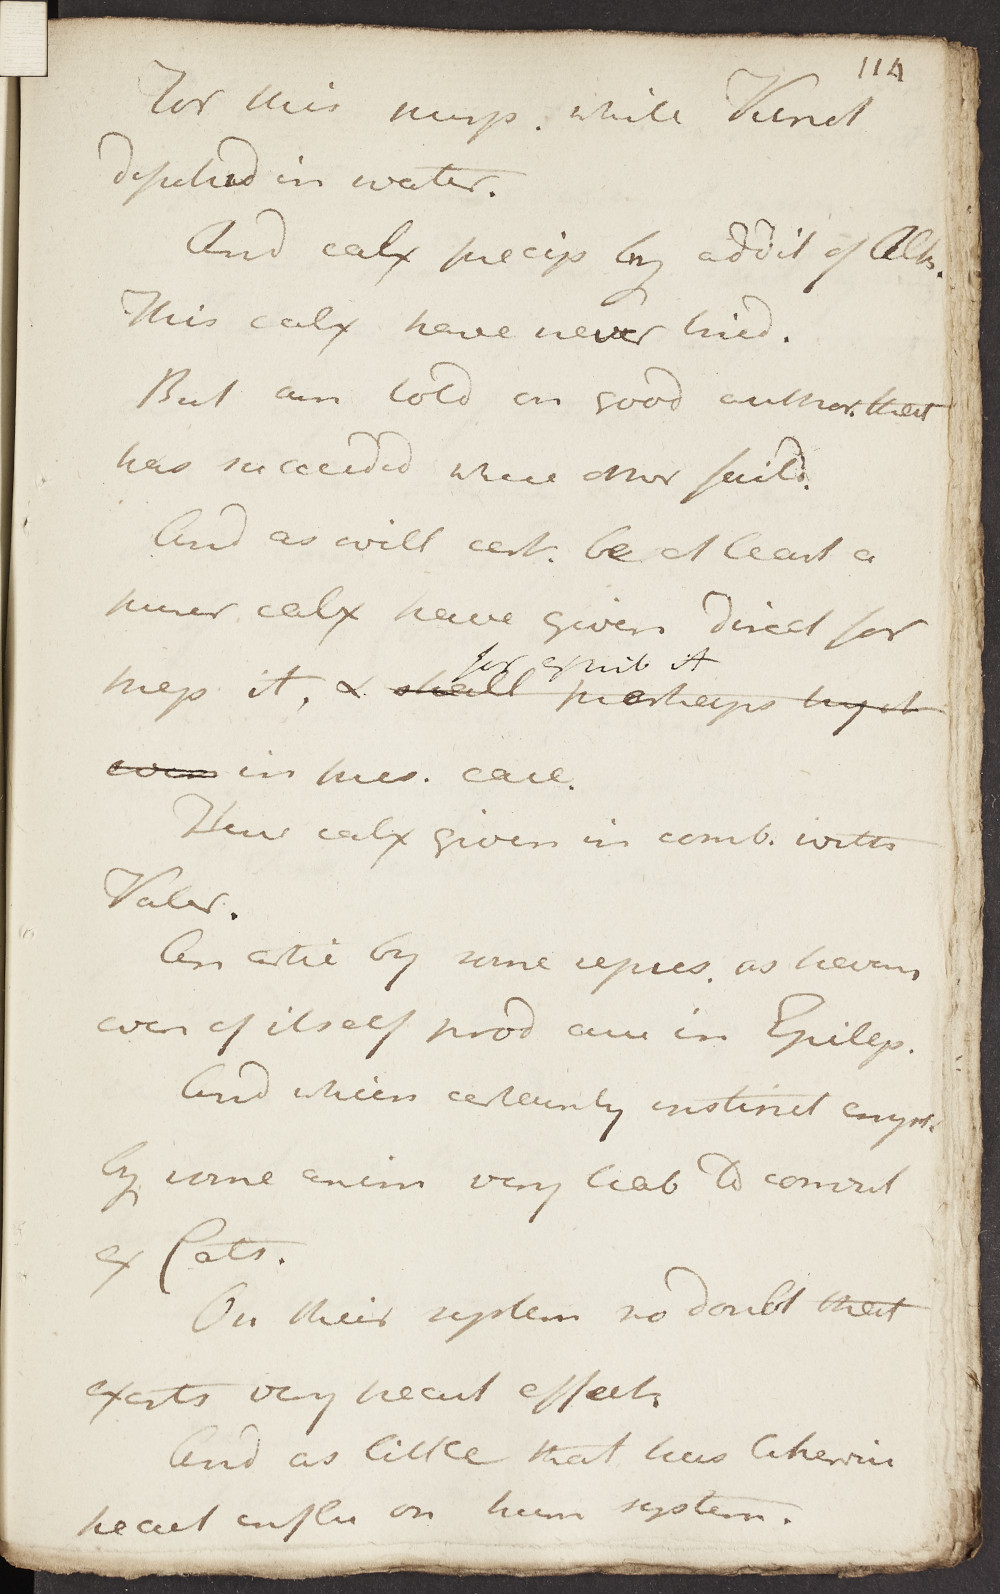 114
For this purp. while Vitriol
dissolved in water.
And calx precip by addit of Alk.
This calx have never tried.
But am told on good author. that
has succeeded where other fail'd.
And as will cert. be at least a
purer calx have given direct for
for exhib it
prep it, & shall perhaps try it
even in pres. case.
This calx given in comb. with
Valer.
An artic by some repres. as having
even of itself prod cure in Epilep.
And which certainly instinct
by some anim very liab to convul
ex Cats.
On their system no doubt that
exerts very pecul effects
And as little that has likewise
pecul influ on hum system.